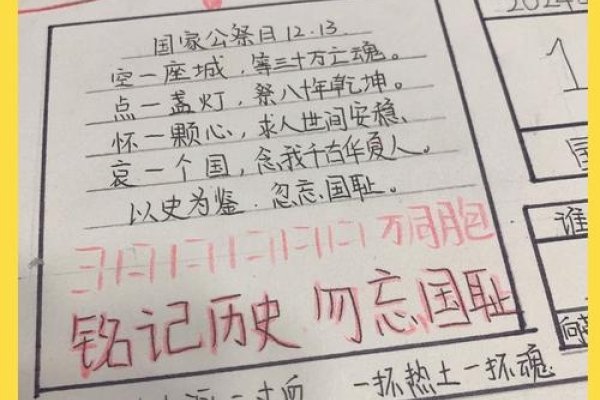 国家公祭日12.13.
空一座城,等三十万亡魂。
点一盏灯,祭八十年乾坤。
怀一颗心,求人世间安稳、
哀一个国,念我千百华夏人。
以史为鉴.忽忘.国耻。
万同胞
铭记历史 勿忘国耻
一寸血 一抔热土一抔魂
1
国
谁